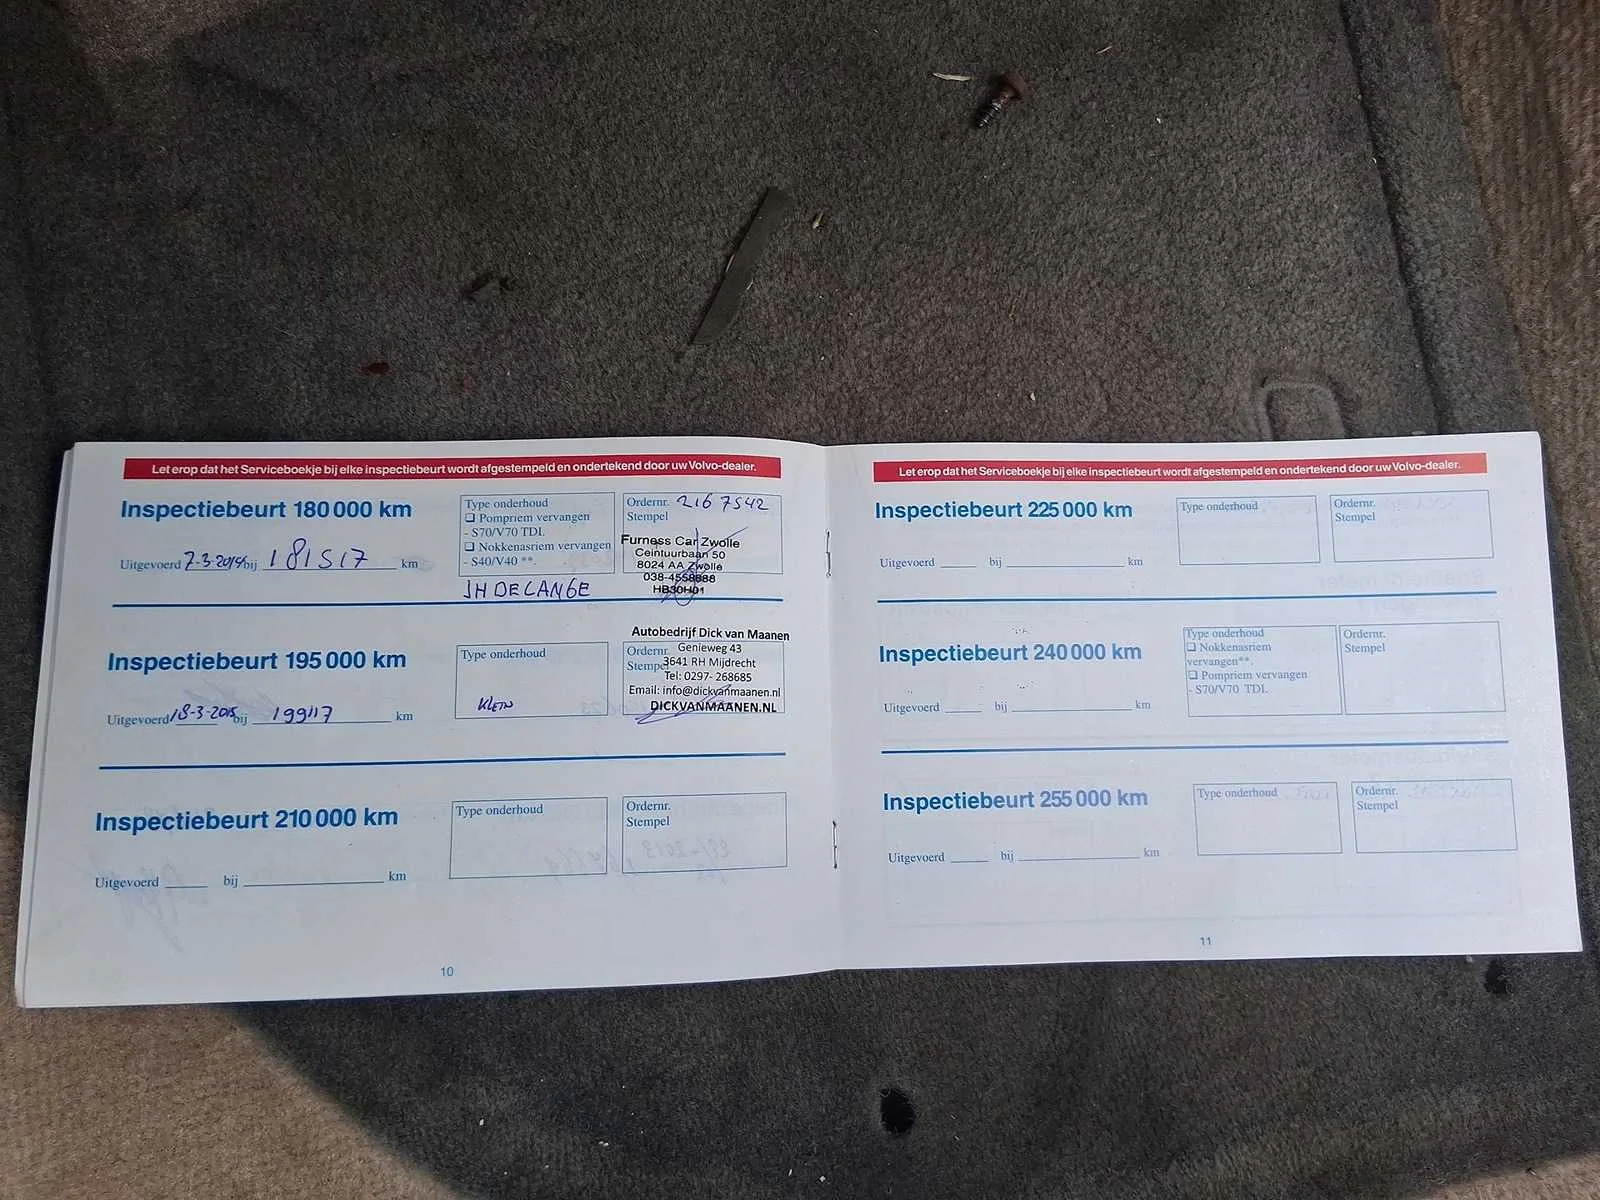 Let erop dat het Serviceboekje bij elke inspectiebeurt wordt afgestempeld en ondertekend door uw Volvo-dealer.
Inspectiebeurt 180 000 km
Type onderhoud
❑ Pompriem vervangen
- S70/V70 TDI.
❑ Nokkenasriem vervangen
- S40/V40 **.
Ordernr. 2167542
Stempel
Furness Car Zwolle
Ceintuurbaan 50
8024 AA Zwolle
038-4558688
HB30H01
Uitgevoerd bij 181517 km
JH DE LANGE
Inspectiebeurt 195 000 km
Type onderhoud
KLEIN
Ordernr.
Stempel
Autobedrijf Dick van Maanen
Genieweg 43
3641 RH Mijdrecht
Tel: 0297- 268685
Email: info@dickvanmaanen.nl
DICKVANMAANEN.NL
Uitgevoerd 18-3-2015 bij 199117 km
Inspectiebeurt 210 000 km
Type onderhoud
Ordernr.
Stempel
Uitgevoerd bij km
10
Let erop dat het Serviceboekje bij elke inspectiebeurt wordt afgestempeld en ondertekend door uw Volvo-dealer.
Inspectiebeurt 225 000 km
Type onderhoud
Ordernr.
Stempel
Uitgevoerd bij km
Inspectiebeurt 240 000 km
Type onderhoud
❑ Nokkenasriem
vervangen**.
❑ Pompriem vervangen
- S70/V70 TDI.
Ordernr.
Stempel
Uitgevoerd bij km
Inspectiebeurt 255 000 km
Type onderhoud
Ordernr.
Stempel
Uitgevoerd bij km
11